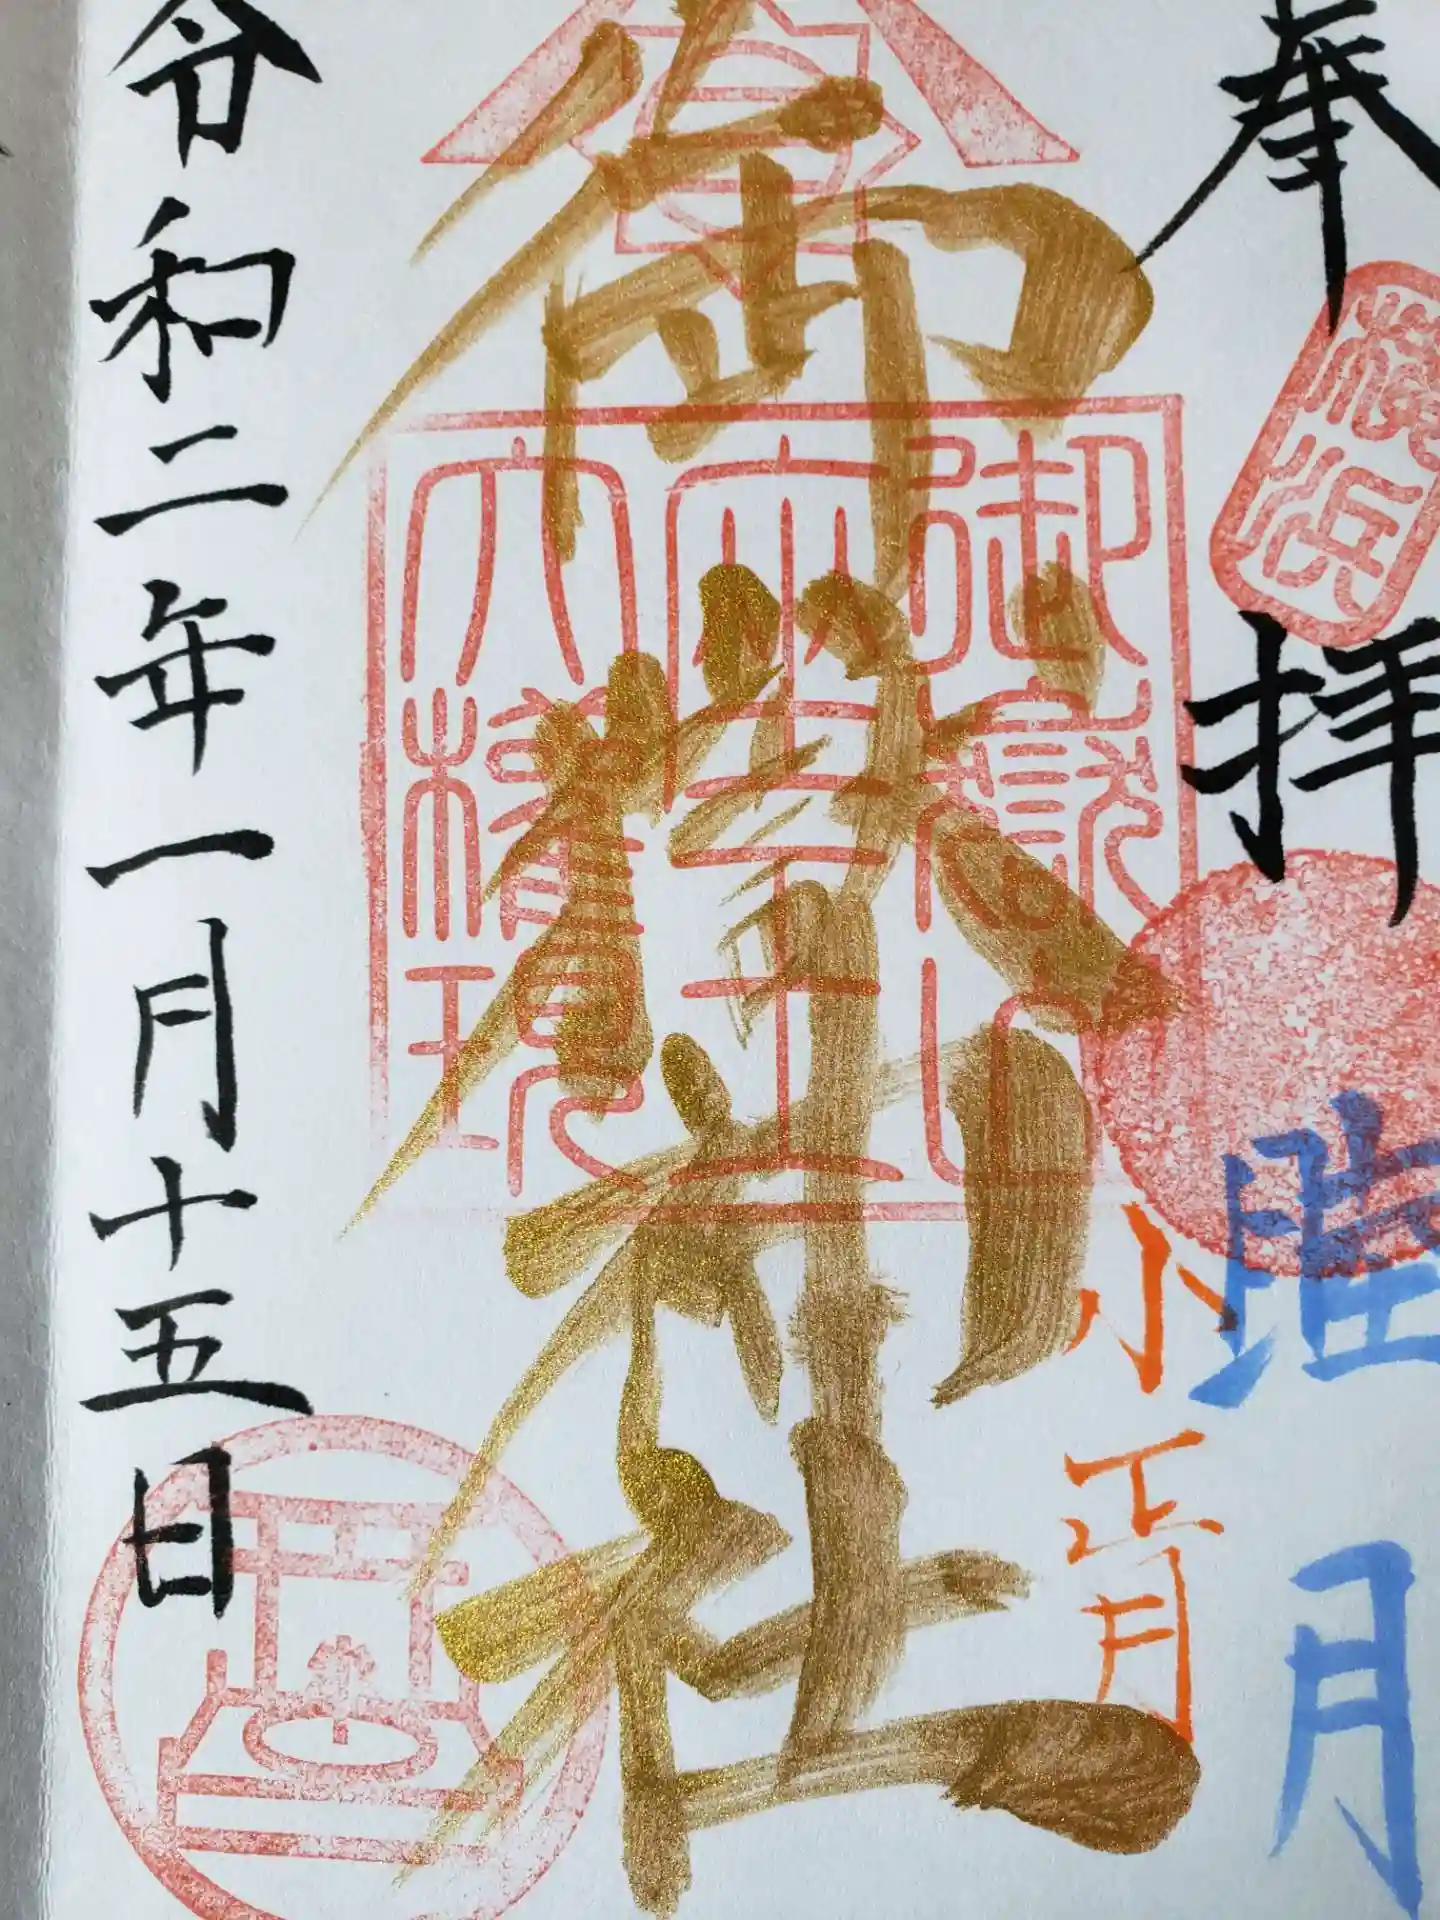 奉拝
横浜
睦月
小正月
御嶽神社
御嶽山
座王
大権現
令和二年一月十五日